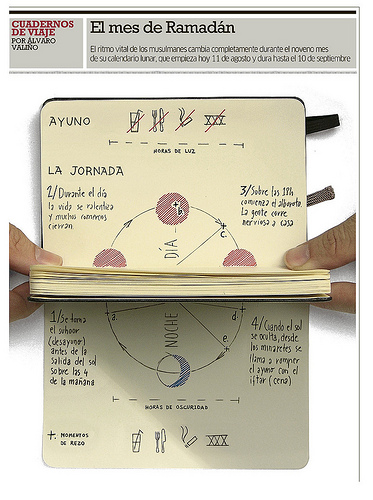 CUADERNOS
DE VIAJE
POR ÁLVARO
VALIÑO
El mes de Ramadán
El ritmo vital de los musulmanes cambia completamente durante el noveno mes
de su calendario lunar, que empieza hoy 11 de agosto y dura hasta el 10 de septiembre
AYUNO
XXX
HORAS DE LUZ
LA JORNADA
2/ Durante el día
la vida se ralentiza
y muchos comercios
cierran
3/ Sobre las 18h
comienza el alboroto.
La gente corre
nerviosa a casa
b.
c.
DÍA
NOCHE
a.
d.
e.
1/ Se toma
el suhoor
(desayuno)
antes de la
salida del sol
sobre las 4
de la mañana
4/ Cuando el sol
se oculta, desde
los minaretes se
llama a romper
el ayuno con el
iftar (cena)
HORAS DE OSCURIDAD
+. MOMENTOS
DE REZO
XXX